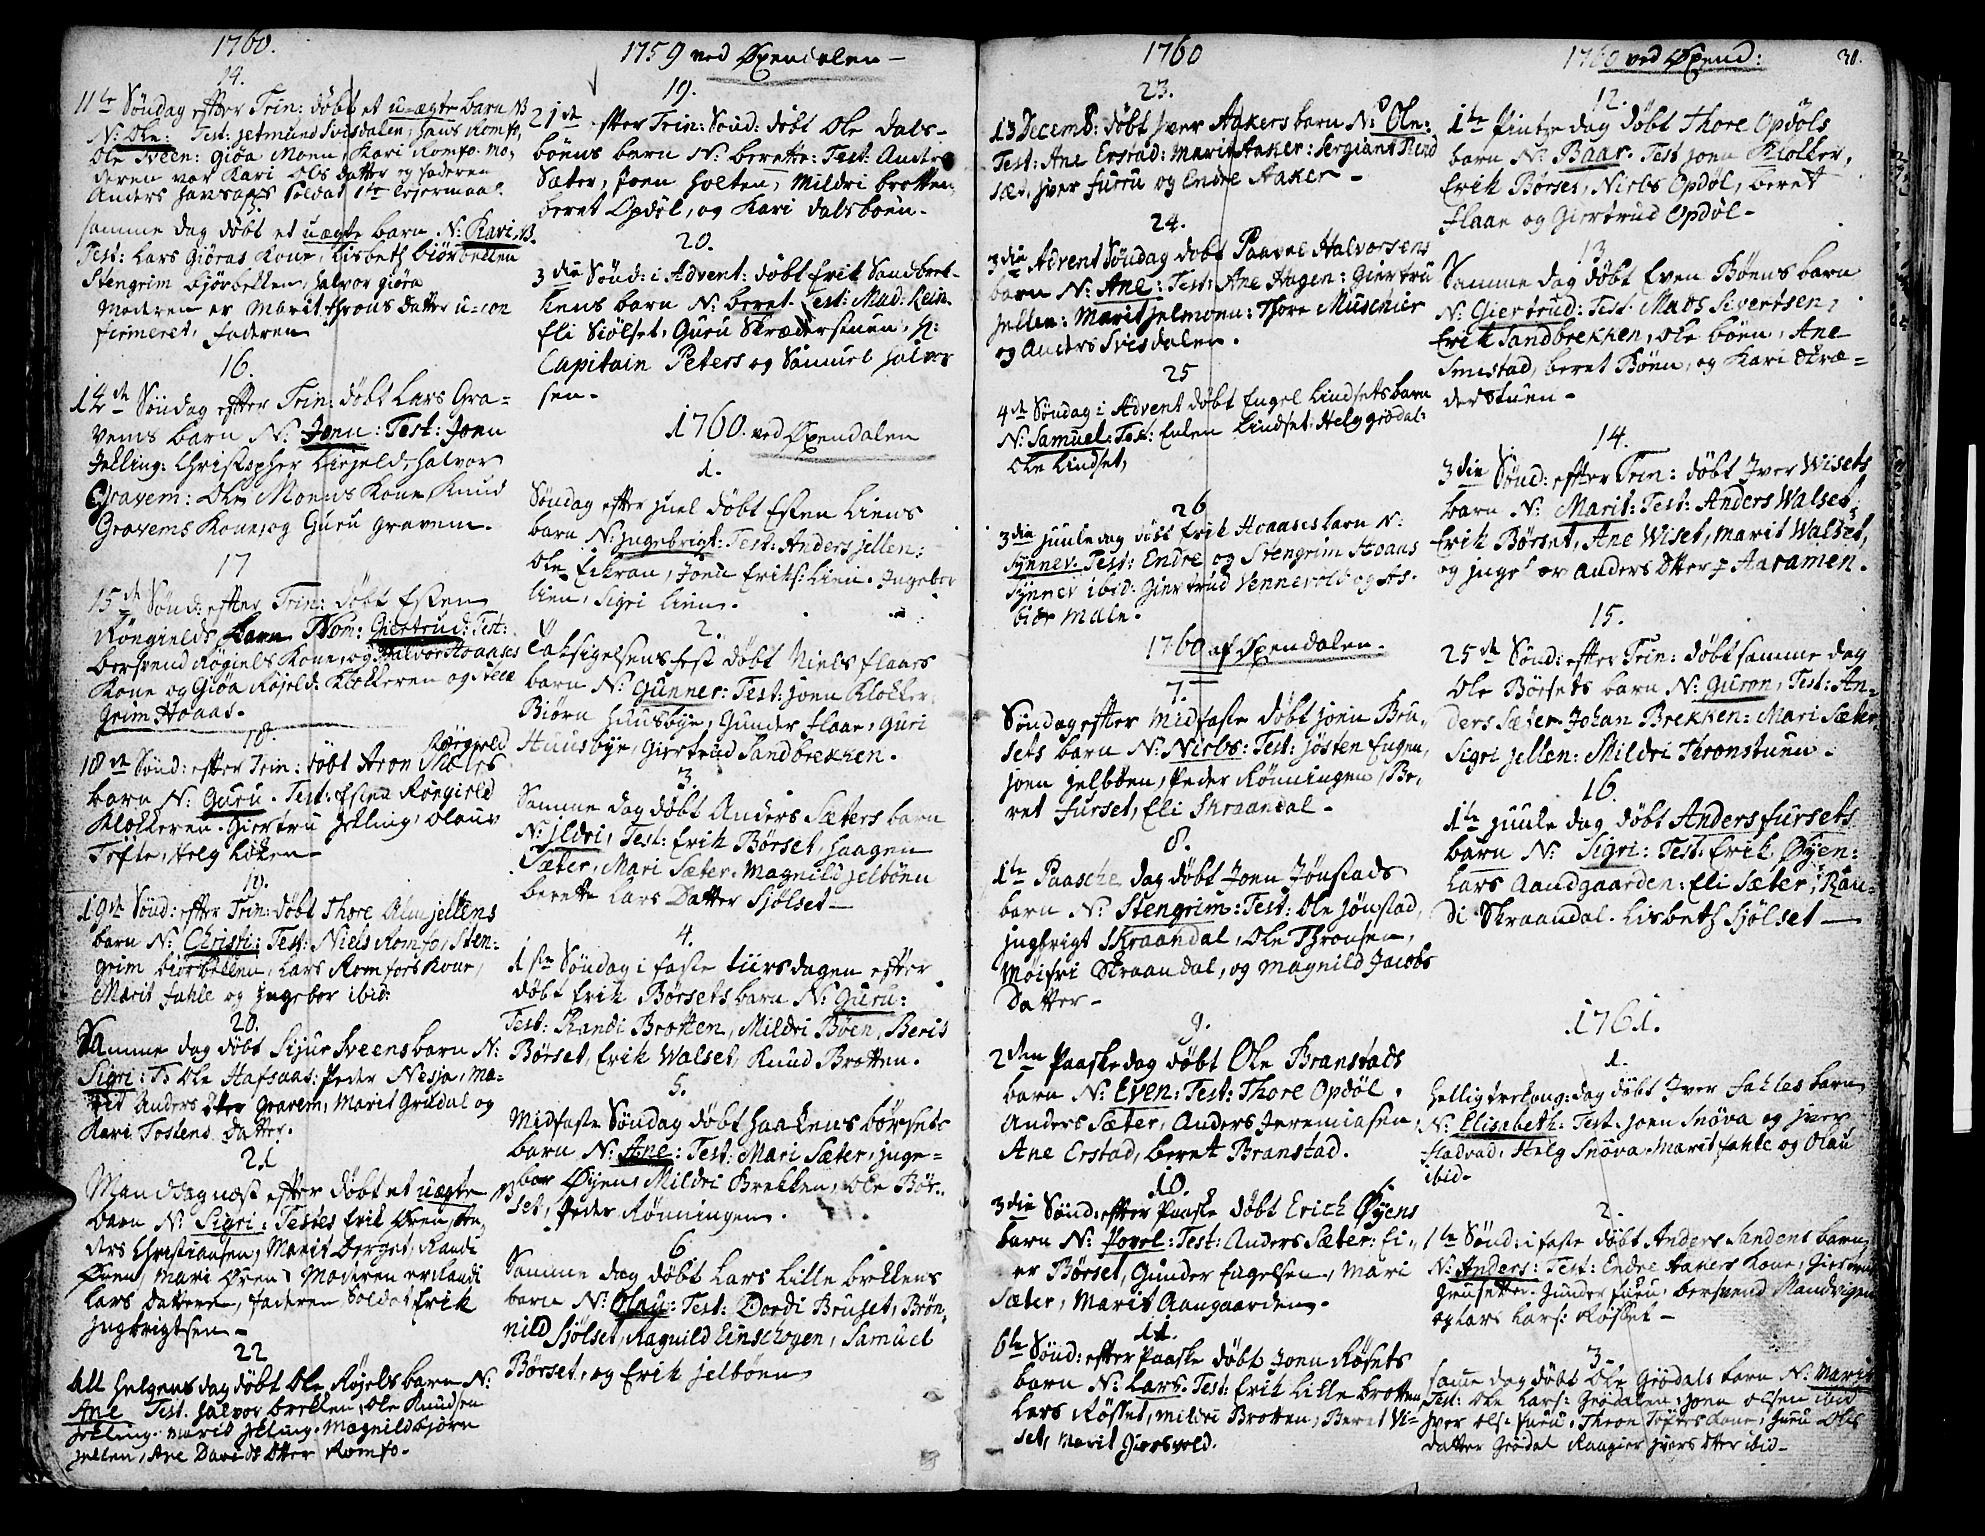 1760.
14.
11te Søndag efter Trin: døbt et u-ægte barn NB
N: Ole: Test: jetmund Svisdalen, hans Romfo,
Ole Sveen: Giøa Moen, Kari Romfo. Mo,
deren var Kari Ols datter og faderen
Anders soldat 1te Lejermaal.
samme dag døbt et uægte barn N: Kari, NB.
Test: Lars Giøras Kone, Lisbeth biörbekken
Stengrim biörbekken, halvor giöra
moderen er Marit throns datter u-con
firmeret, faderen
16.
14de Söndag efter Trin: döbt Lars Gra-
vems barn N: Jonn: Test: Joen
Jekling: Christopher Lirjeld, halvor
Gravem: Ole Moens Kone, Knud
Gravems Kone, og Guru gravem.
17
15de Sönd: efter Trin: döbt Esten
Röngields barn Nom: Giertrud: Test:
bersvend Røgiels Kone, og halvor Hoaases
Kone og Giøa Røjeld: Klokkeren og Sten
grim Hoaas.
18.
18de Sönd: efter Trin: döbt Aron Röegield
barn N: Guru. Test: Esten Röegield
Klokkeren. giertru jekling, Olaur
Tofte, Helg Loken
19.
19de Sönd: efter Trin: döbt Thore Almjellens
barn N: Christi: Test: Niels Romfo, Sten-
grim biörbekken, Lars Romfors Kone,
Marit fahle og Ingebor ibid:
20.
Samme dag döbt Sijur Sveens barn N:
Sigri: T: Ole Hafsaas: Peder Nesja, Ma-
rit Anders dtter gravem, Marit Grødal og
Kari Tostens datter.
21
Mandag næst efter döbt et uægte
barn N: Sigri: Testes Erik Øren, An,
ders Christiansen, Marit berget, Randi
Øren, Mari Øren. Moderen er Randi
Lars dattern, faderen Soldat Erik
Ingbrigtsen.
22
All helgens dag döbt Ole Röjels barn N:
Ane Test: halvor brekken, Ole Knudsen
jekling. Marit jekling. Magnild bjørn
jellen, Ane Davids dtter Romfo.
1759 ved Øxendalen -
19.
21de efter Trin: Sönd: döbt Ole dals-
böens barn N: berette: Test: Andre
Sæter, Joen holten, Mildri brotten,
beret Opdöl, og Kari dalsboen.
20.
3die Sönd: i Advent: döbt Erik Sandbrek-
kens barn N: beret. Test: Mad: Rein.
Eli Siölset, Guru Skræderstuen, H:
Capitain Peters og Samuel halvor
sen.
1760. ved Øxendalen
1.
Söndag efter juel döbt Esten Liens
barn N: Ingebrigt: Test: Anders jellen;
Ole Eikran, Joen Eriks: Lien. Ingebor
Lien, Sigri Lien.
2.
Taksigelsens fest döbt Niels flaaes
barn N: Gunner: Test: joen Klokker
Biörn Huusbye, Gunder flaae, Guri
Huusbye, giertrud Sandbrekken.
3.
Samme dag döbt Anders Sæters barn
N: ildri, Test: Erik Börset, haagen
Sæter, Mari Sæter. Magnild jelböen
berette Lars Datter Sjölset
4.
1ste Söndag i faste tiirsdagen efter
döbt Erik Börsets barn N: Guru:
Test: Randi Brotten, Mildri Böen, Beris
Börset, Erik Walset, Knud Brotten.
5.
Midfaste Söndag döbt haakens börsets
barn N: Ane: Test: Mari Sæter, inge-
bor Øyen, Mildri Brekken, Ole Bör-
set, Peder Rönningen.
6.
Samme dag döbt Lars Lille brekkens
barn N: Olau: Test: Dordi Bruset, Brön,
nild Sjölset, Ragnild Einschogen, Samuel
Börset, og Erik jelböen
1760
23.
13 Decemb: döbt Iver Aakers barn N: Ole:
Test: Ane Erstad: Marit Aaker: Sergiant Rind
sæt, Iver furru og Endre Aaker -
24.
3die Advent Söndag döbt Paavel Halvorsens
barn N: Ane: Test: Ane Hagen: Giertru
jellen: Marit jelmoen: Thore Musenier
og Anders Svisdalen.
25
4de Söndag i Advent döbt Engel Lindsets barn
N: Samuel: Test: Enlen Lindset: Helg grødal:
Ole Lindset,
26
3die juule dag döbt Erik Hoaases barn N:
Synnev: Test: Endre og Stengrim Hoaas
Synnev ibid: Giertrud Vennevold og As-
bior Male.
1760 af Øxendalen.
7.
Söndag efter Midfaste döbt joen Bru-
sets barn N: Niels: Test: jösten Engen,
joen jelböen, Peder Rönningen, Be-
ret Furset, Eli Skraandal -
8.
1te Paasche dag döbt Joen Jönstads
barn N: Stengrim: Test: Ole jönstad,
ingbrigt Skraandal, Ole Thronsen,
Möifri Skraandal, og Magnild Jacobs
Datter -
9.
2den Paaske dag döbt Ole Branstads
barn N: Even: Test: Thore Opdöl,
Anders Sæter, Anders Jeremiasen,
Ane Erstad, beret Branstad.
10.
3die Sönd: efter Paaske döbt Erich Øyens
barn N: Povel: Test: Anders Sæter: Ei-
er Börset, Gunder Engelsen, Mari
Sæter, Marit Aangaarden.
11.
6te Sönd: efter Paaske döbt Joen Røsets
barn N: Lars. Test: Erik Lille brotten,
Lars Røsset, mildri Brotten, Beret Vi-
set, Marit
1760 ved Øxend:
30.
12.
1te Pintzedag döbt Thore Opdöls
barn N: Baar. Test joen Klokker,
Erik Börset, Niels Opdøl, beret
flaae og Giertrud Opdøl -
13
Samme dag döbt Even Böens barn
N: Giertrud: Test: Mads Sivertsen,
Erik Sandbrekken, Ole böen, Ane
Smistad, beret Böen, og Kari Skræ-
derstuen -
14.
3die Sönd: efter Trin: döbt Iver Wisets
barn N: Marit: Test: Anders Walset,
Erik Börset, Ane Wiset, Marit Walset,
og Ingebor Anders Dtter Aaramen.
15.
25de Sönd: efter Trin: döbt samme dag
Ole Börsets barn N: Guron, Test: An-
ders Sæter. Johan Brekken: Mari Sæter,
Sigri jellen: Mildri Thronstuen.
16.
1te juule dag döbt Anders fursets
barn N: Sigri: Test: Erik Øyen:
Lars Aandgaarden: Eli Sæter, Ran-
di Skraandal. Lisbeth Sjölset
1761.
1.
Hellig trekong: dag döbt Iver fahles barn
N: Elisabeth: Test: joen Snöva og Iver
Hadvad, Helg Snöva. Marit fahle og Olau
ibid.
2.
1te Sönd: i faste döbt Anders Sandens barn
N: Anders: Test: Endre Aakers Kone, Giertrud
Grusetter. Gunder furu, bersvend Mandvigen
og Lars Lars: Røsset -
3.
samme dag döbt Ole Grödals barn N: Marit
Test: Ole Lars: Grødalen, jonn Olsen ibid
Iver Ols: furu, Thron Tofters Kone, Guru Ols
datter Grödal Raagier Ivers dtter ibid -